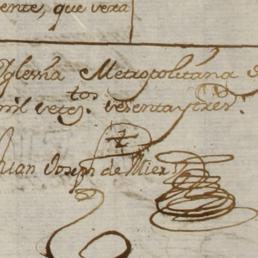 ente, que vera
Iglesia Metropolitana d
mil set.tos sesenta y tres.
Juan Joseph de Mier